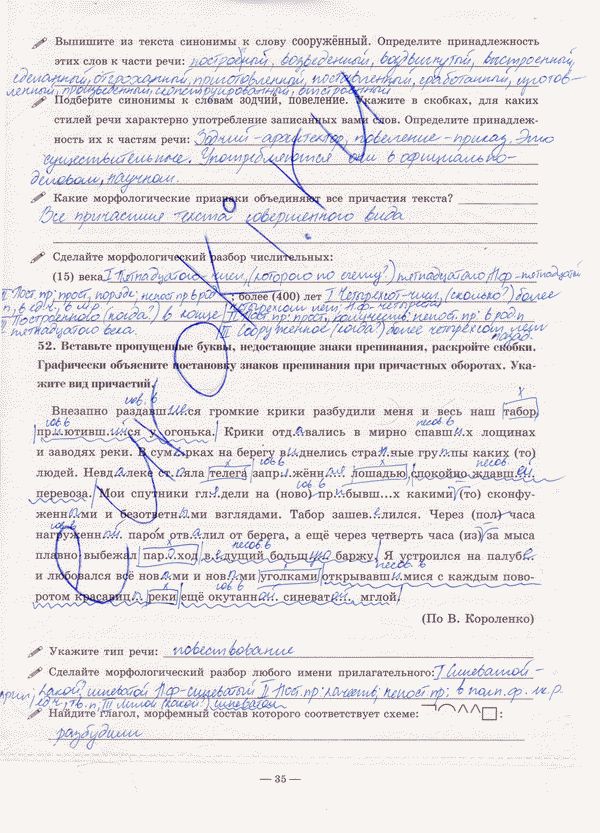 Выпишите из текста синонимы к слову сооружённый. Определите принадлежность
этих слов к части речи: построенный, возведенный, воздвигнутый, выстроенный,
сделанный, отгроханный, приготовленный, поставленный, сработанный, изготов-
ленный, произведенный, сконструированный, выстроенный
Подберите синонимы к словам зодчий, повеление. Укажите в скобках, для каких
стилей речи характерно употребление записанных вами слов. Определите принадлеж-
ность их к частям речи: Зодчий - архитектор, повеление - приказ. Это
существительное. Употребляются они в официально-
деловом, научном.
Какие морфологические признаки объединяют все причастия текста?
Все причастия текста совершенного вида
Сделайте морфологический разбор числительных:
(15) века I Пятнадцатого - числ, (которого по счету?) пятнадцатого Нф - пятнадцатый
II Пост. пр: прост, порядк; непост пр в род. ; более (400) лет I Четырехсот - числ, (сколько?) более
п, в ед.ч, в м.р. четырехсот лет Н.ф. - четыреста
III Построенного (когда?) в конце II Пост. пр: прост, количеств; непост. пр: в род.п
пятнадцатого века. III Сооруженное (когда?) более четырехсот лет
назад.
52. Вставьте пропущенные буквы, недостающие знаки препинания, раскройте скобки.
Графически объясните постановку знаков препинания при причастных оборотах. Ука-
жите вид причастий.
Внезапно раздавш и е ся громкие крики разбудили меня и весь наш табор
пр и ютивш и йся у огонька. Крики отд а вались в мирно спавш и х лощинах
и заводях реки. В сум е рках на берегу в и днелись стра н ные гру п пы каких (то)
людей. Невд а леке ст о яла телега запр я жённ а я лошадью спокойно ждавш ей
перевоза. Мои спутники гл я дели на (ново) пр и бывш...х какими (то) сконфу-
женн ы ми и безответн ы ми взглядами. Табор зашев е лился. Через (пол) часа
нагруженн ый паром отв а лил от берега, а ещё через четверть часа (из) за мыса
плавно выбежал пар о ход в е дущий больш ую баржу. Я устроился на палуб е
и любовался всё нов ы ми и нов ы ми уголками открывавш и мися с каждым пово-
ротом красавиц ы реки ещё окутанн ой синеват ой мглой.
(По В. Короленко)
Укажите тип речи: повествование
Сделайте морфологический разбор любого имени прилагательного: I Синеватой -
прил, какой? синеватой Нф - синеватой II Пост. пр: качеств; непост. пр: в полн. ф. ж.р.
ед.ч, тв.п, III Мглой (какой?) синеватой
Найдите глагол, морфемный состав которого соответствует схеме:
разбудили
— 35 —